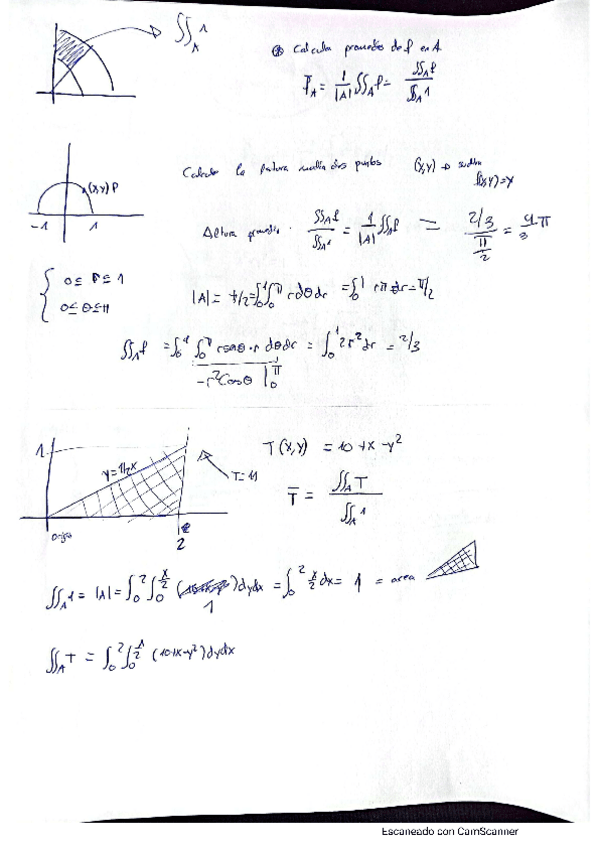 ∬_A 1
⊛ Calcular promedio de f en A
f̄_A = 1/|A| ∬_A f = ∬_A f / ∬_A 1
(x,y) P
-1 1
Calcular la altura media dos puntos (x,y) → f(x,y)=y
Altura promedio. ∬_A f / ∬_A 1 = 1/|A| ∬_A f = (2/3)/(π/2) = 4/3 π
{ 0 ≤ r ≤ 1
0 ≤ θ ≤ π
|A| = π/2 = ∫_0^1 ∫_0^π r dθ dr = ∫_0^1 rπ dr = π/2
∬_A f = ∫_0^1 ∫_0^π r sen θ · r dθ dr = ∫_0^1 2r² dr = 2/3
-r² cos θ |_0^π
1
y = 1/2 x
T=11
Origen
2
T(x,y) = 10 + x - y²
T̄ = ∬_A T / ∬_A 1
∬_A 1 = |A| = ∫_0^2 ∫_0^{x/2} 1 dy dx = ∫_0^2 x/2 dx = 1 = area
∬_A T = ∫_0^2 ∫_0^{x/2} (10+x-y²) dy dx
Escaneado con CamScanner